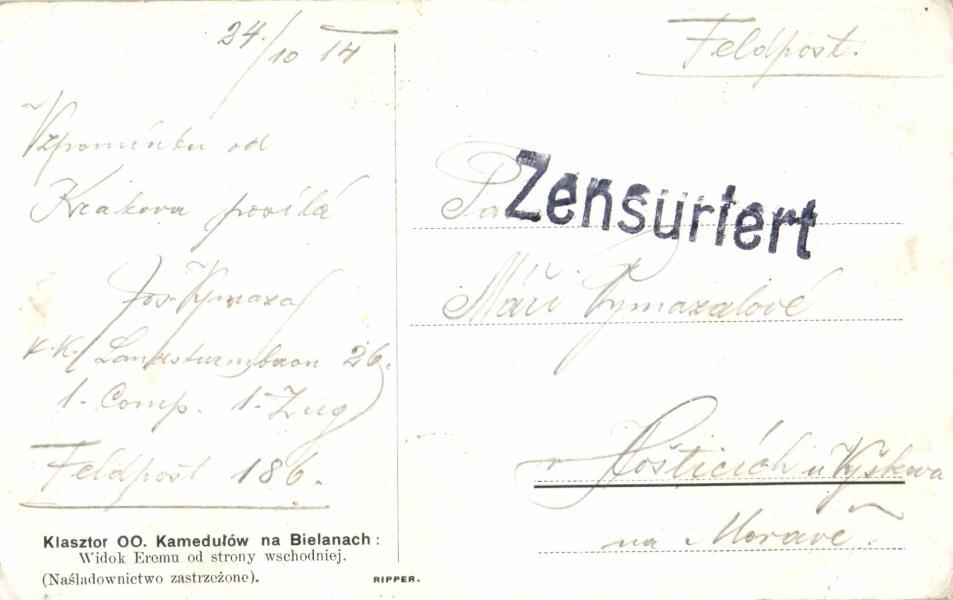 24./10 14
Vzpomínku od
Krakova posílá
Jos. Vymazal
k.k. Landsturmbaon 26.
1. Comp. 1. Zug
Feldpost 186.
Klasztor OO. Kamedułów na Bielanach:
Widok Eremu od strony wschodniej.
(Naśladownictwo zastrzeżone).
RIPPER.
Feldpost.
Zensuriert
Máři Vymazalové
v Hošticích u Vyškova
na Moravě.